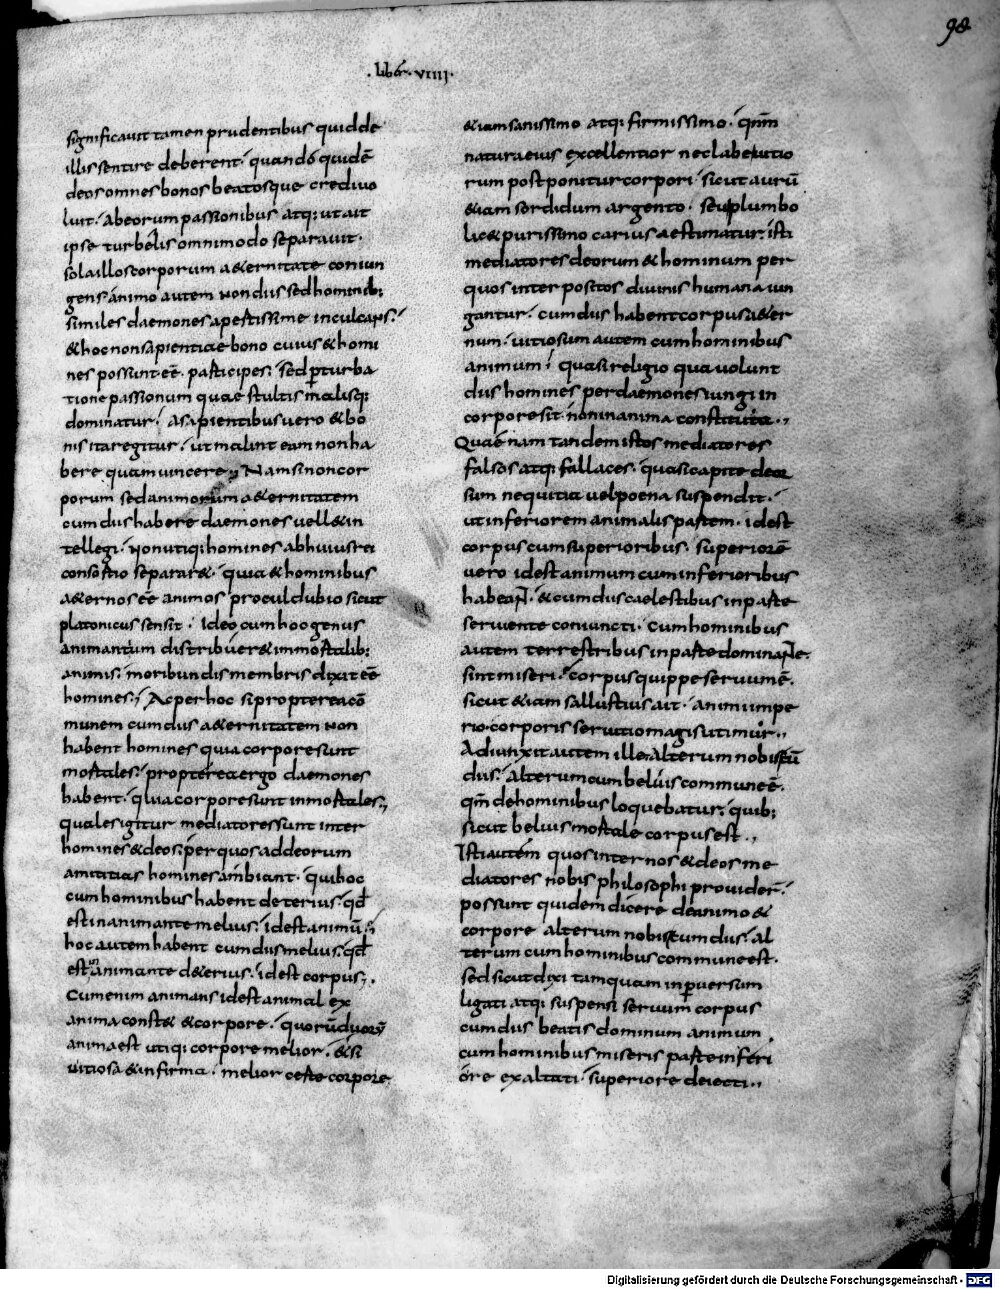 98
. liber . viiii .
significavit tamen prudentibus quid de
illis sentire deberent; quando quidē
deos omnes bonos beatosque credi vo
luit; ab eorum passionibus atq; ut ait
ipse turbelis omni modo separavit.
sola illos corporum a&ernitate coniun
gens; animo autem non diis sed hominib;
similes daemones apertissime inculcans;
& hoc non sapientiae bono cuius & homi
nes possunt eē participes; sed p̄turba
tione passionum quae stultis malisq;
dominatur; a sapientibus vero & bo
nis ita regitur; ut malint eam non ha
bere quam vincere; Nam si non cor
porum sed animorum a&ernitatem
cum diis habere daemones vell& in
tellegi; non utiq; homines ab huius rei
consortio separar&. quia & hominibus
a&ernos eē animos procul dubio sicut
platonicus sensit. Ideo cum hoc genus
animantum distribuer& immortalib;
animis; moribundis membris dixit eē
homines; Ac per hoc si propterea cō
munem cum diis a&ernitatem non
habent homines quia corpore sunt
mortales; propterea ergo daemones
habent. quia corpore sunt inmortales;
quales igitur mediatores sunt inter
homines & deos; per quos ad deorum
amicitias homines ambiant. qui hoc
cum hominibus habent deterius; qđ
est in animante melius; id est animū;
hoc autem habent cum diis melius; qđ
est in animante d&erius; id est corpus;
Cum enim animans id est animal ex
anima const& & corpore. quorū duorū
anima est utiq; corpore melior. &si
vitiosa & infirma; melior certe corpore
&iam sanissimo atq; firmissimo. qnm̄
natura eius excellentior nec labe vitio
rum postponitur corpori. sicut aurū
&iam sordidum argento. seu plumbo
lic& purissimo carius aestimatur; isti
mediatores deorum & hominum per
quos inter positos divinis humana iun
gantur; cum diis habent corpus a&er
num; vitiosum autem cum hominibus
animum; quasi religio qua volunt
diis homines per daemones iungi in
corpore sit. non in anima constituta;
Quae nam tandem istos mediatores
falsos atq; fallaces. quasi capite deor
sum nequitia vel poena suspendit;
ut inferiorem animalis partem. id est
corpus cum superioribus. superiorē
vero id est animum cum inferioribus
habean̄. & cum diis caelestibus in parte
serviente coniuncti. cum hominibus
autem terrestribus in parte dominante
sint miseri; corpus quippe servum ē.
sicut &iam sallustius ait; animi impe
rio. corporis servitio magis utimur;
Adiunxit autem ille. Alterum nobis cū
diis; alterum cum beluis commune ē.
qm̄ de hominibus loquebatur; quib;
sicut beluis mortale corpus est;
Isti autem quos inter nos & deos me
diatores nobis philosophi provider̄;
possunt quidem dicere de animo &
corpore alterum nobis cum diis; al
terum cum hominibus commune est.
sed sicut dixi tamquam in p̄versum
ligati atq; suspensi servum corpus
cum diis beatis dominum animum
cum hominibus miseris parte inferi
ore exaltati; superiore deiecti;
Digitalisierung gefördert durch die Deutsche Forschungsgemeinschaft - DFG